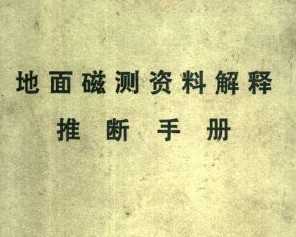 地面磁测资料解释
推断手册